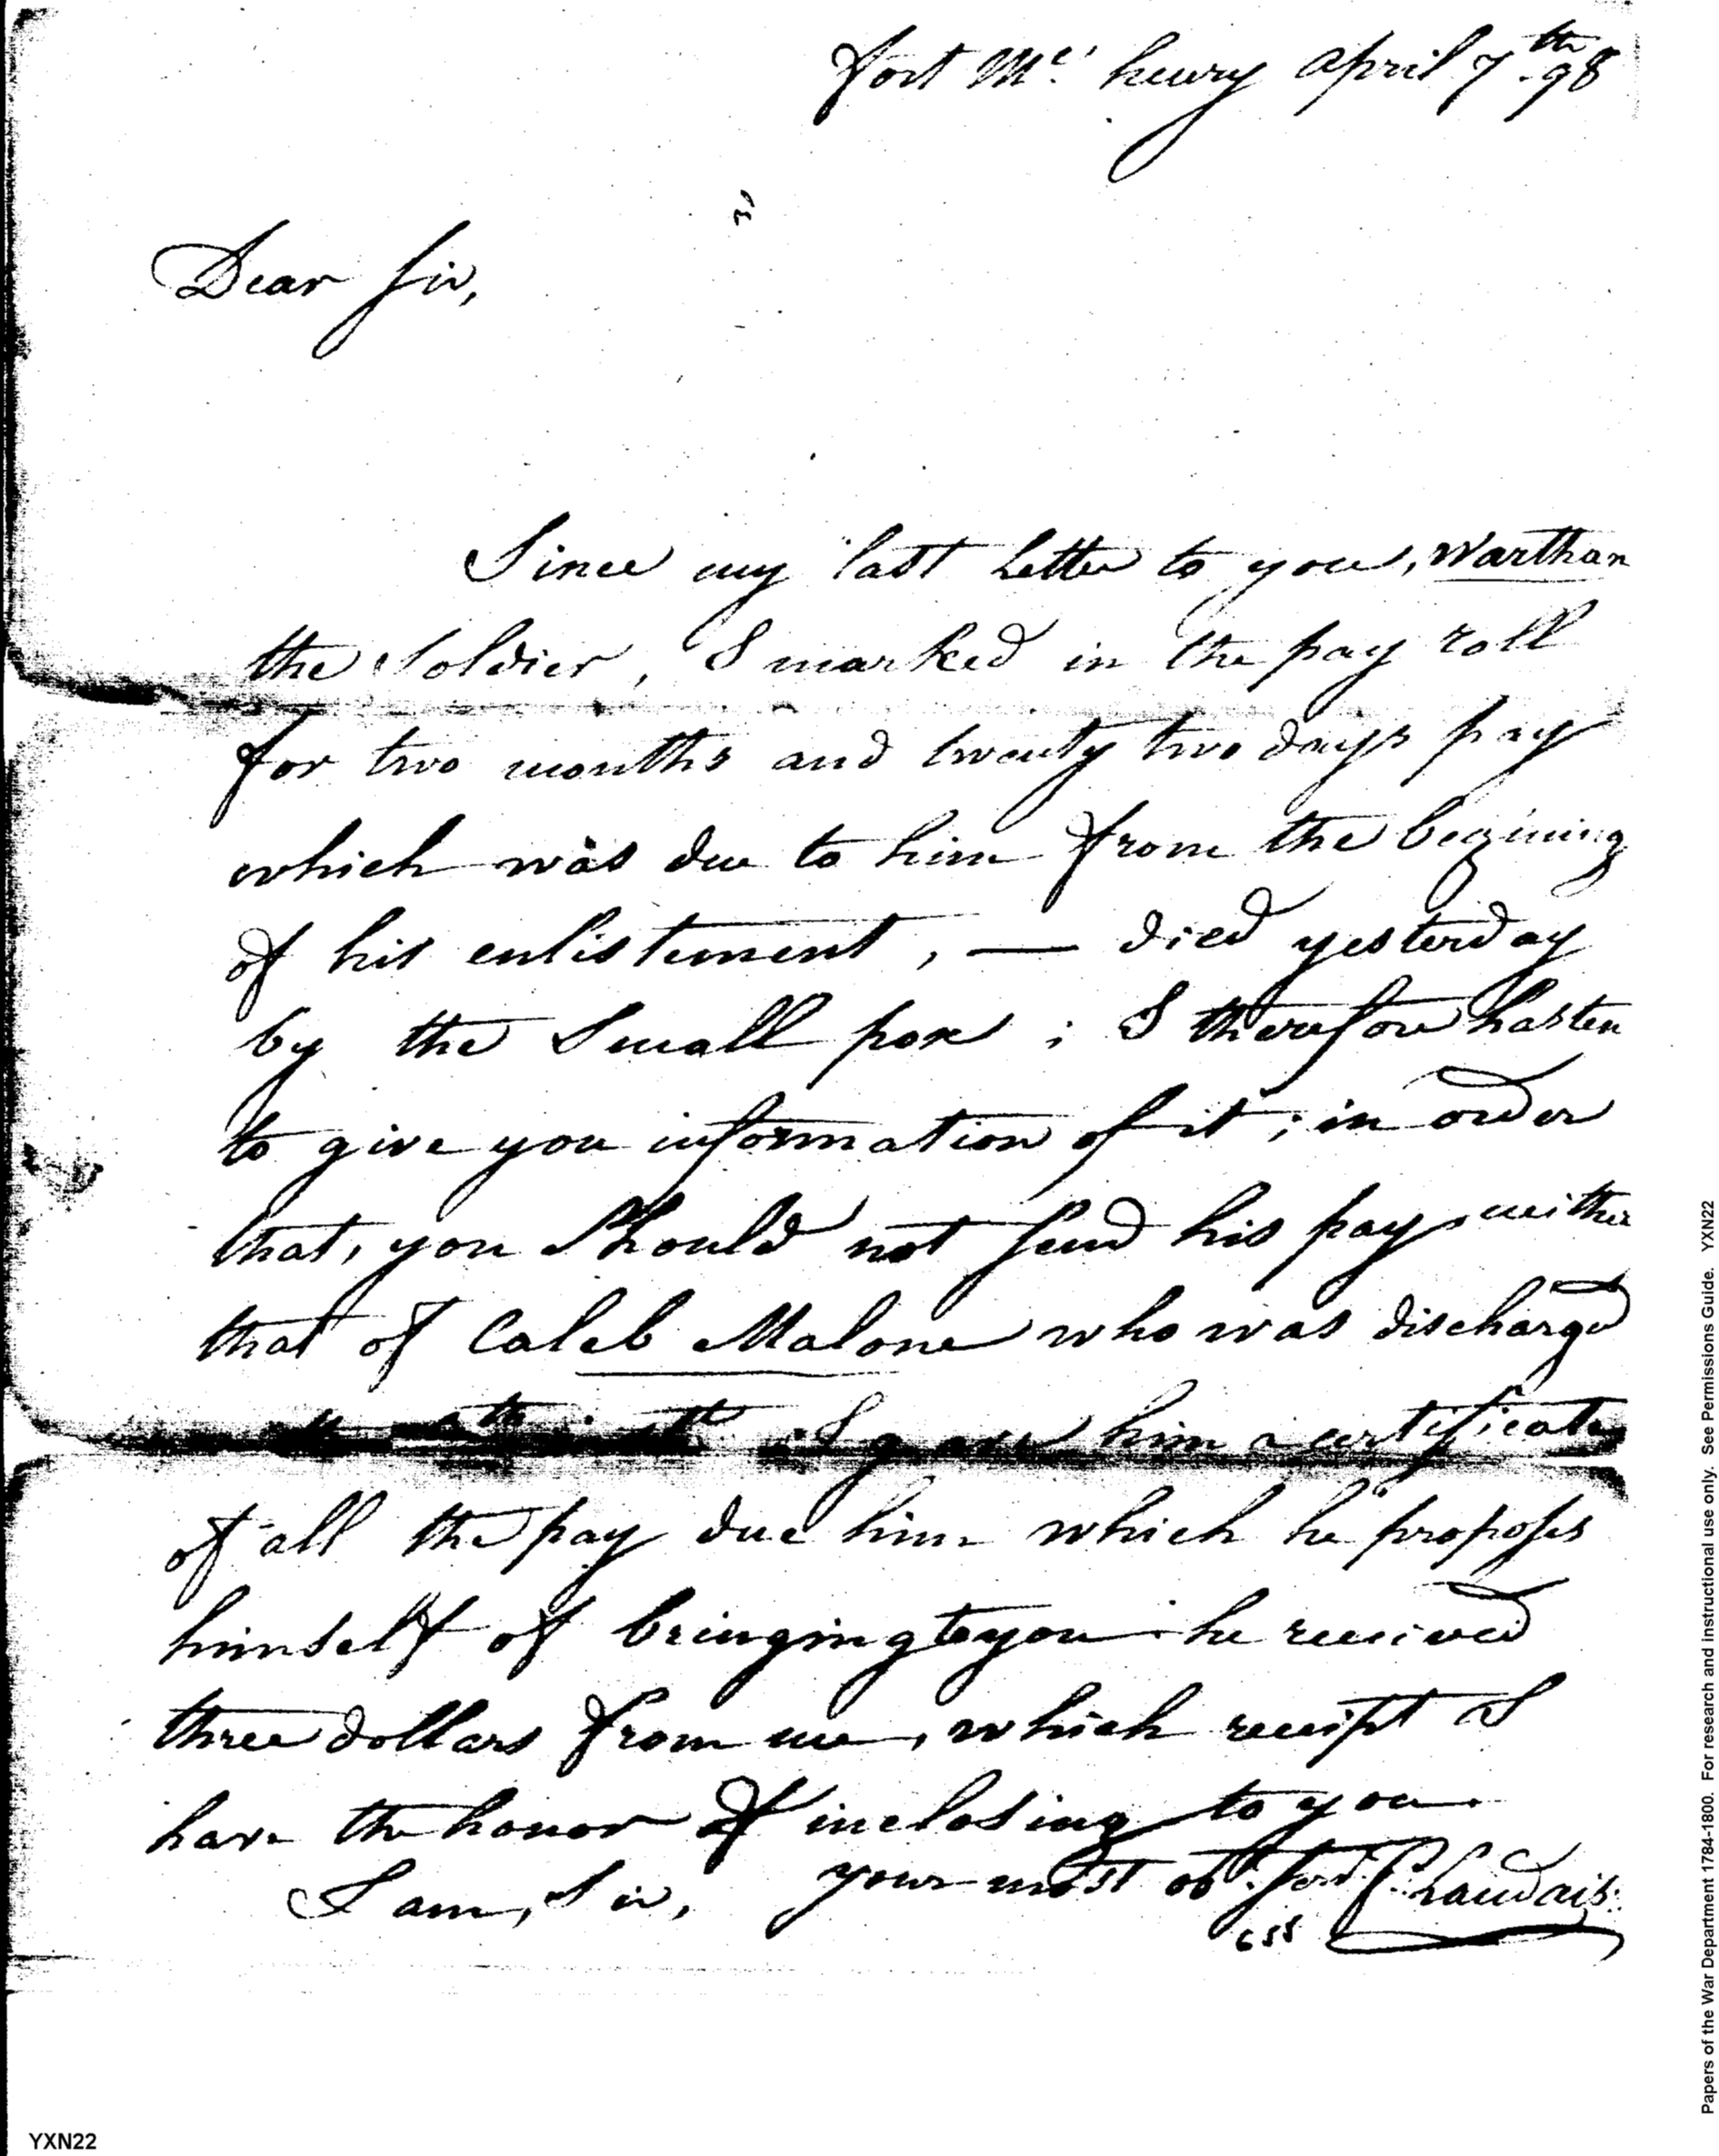 fort Mc. henry april 7th. 98
Dear Sir,
Since my last letter to you, Warthan
the Soldier, I marked in the pay roll
for two months and twenty two days pay
which was due to him from the begining
of his enlistement, — died yesterday
by the Small pox ; I therefore hasten
to give you information of it ; in order
that, you Should not Send his pay, neither
that of Caleb Malone who was discharged
I gave him a certificate
of all the pay due him which he proposes
himself of bringing to you he received
three dollars from me, which receipt I
have the honor of inclosing to you.
I am, Sir, your most obt. Servt.
655
Papers of the War Department 1784-1800. For research and instructional use only. See Permissions Guide. YXN22
YXN22